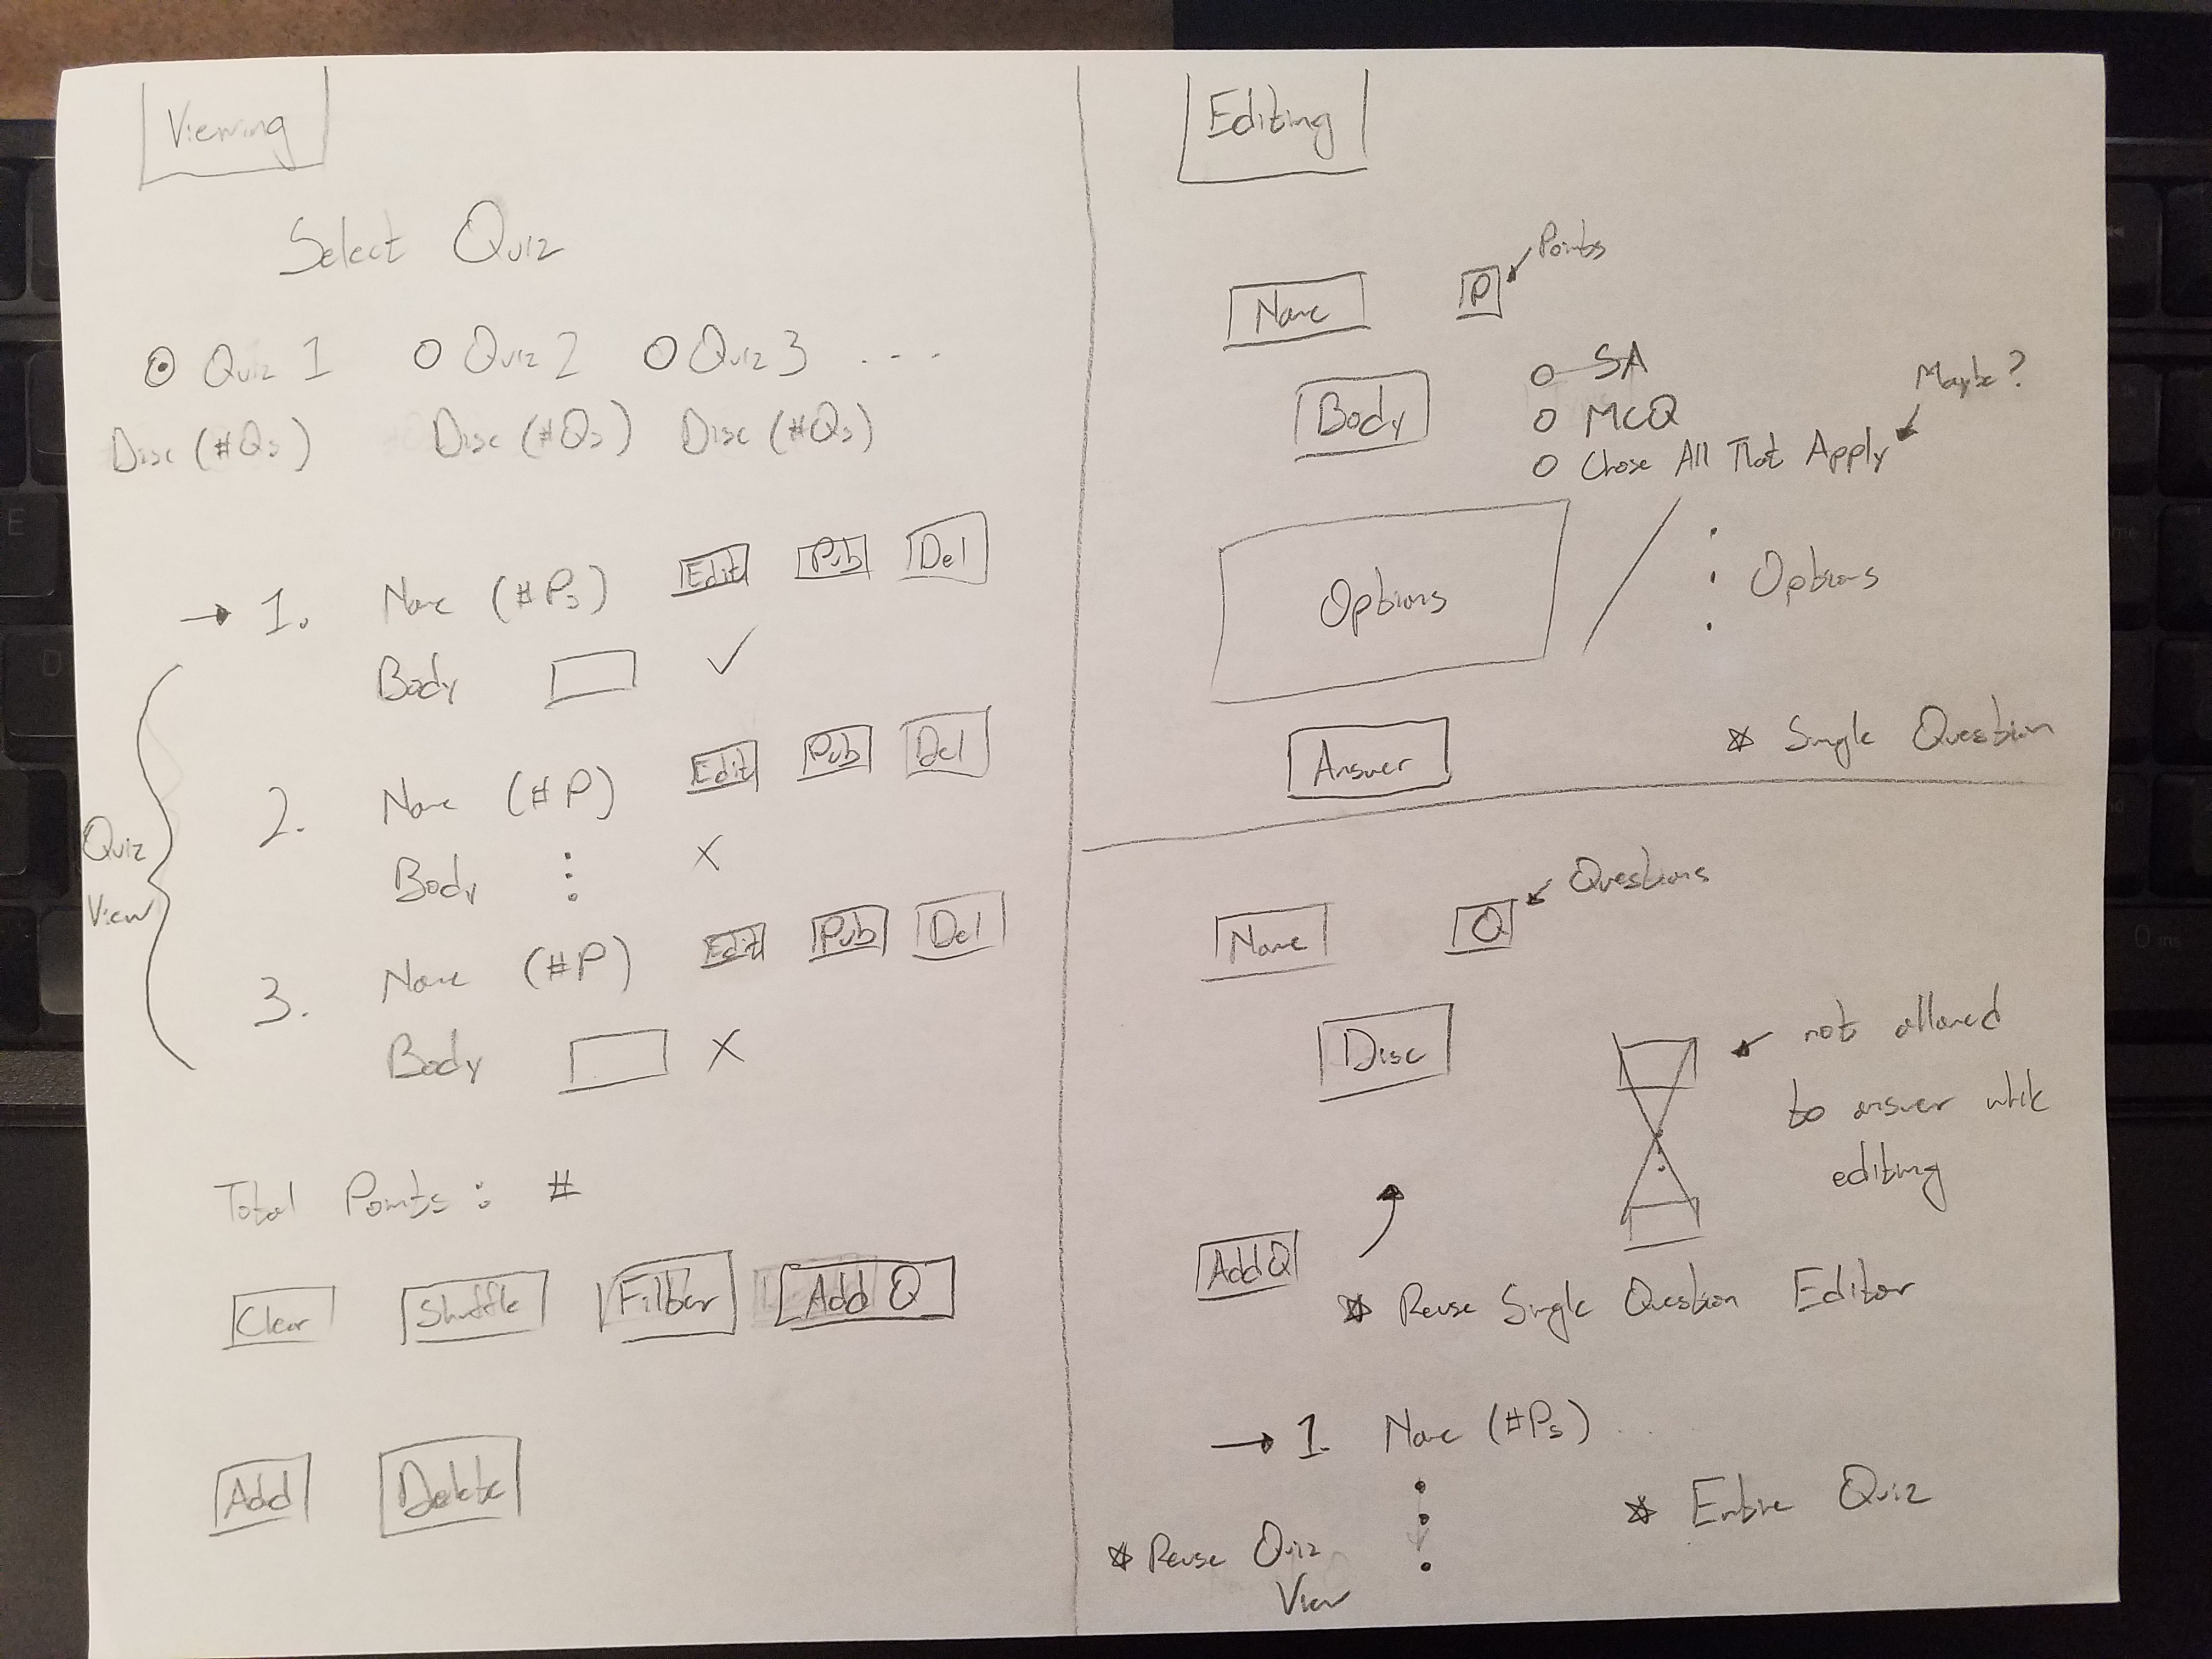 Viewing
Select Quiz
Quiz 1 Quiz 2 Quiz 3 ...
Disc (#Qs) Disc (#Qs) Disc (#Qs)
→ 1. Name (#Ps) Edit Pub Del
Body ✓
Quiz View
2. Name (#P) Edit Pub Del
Body ⋮ X
3. Name (#P) Edit Pub Del
Body X
Total Points: #
Clear Shuffle Filter Add Q
Add Delete
Editing
Name P Points
Body
SA
MCQ
Chose All That Apply Maybe?
Options / ⋮ Options
Answer
* Single Question
Name Q Questions
Disc
not allowed
to answer while
editing
Add Q
* Reuse Single Question Editor
→ 1. Name (#Ps)
⋮
* Reuse Quiz
View
* Entire Quiz